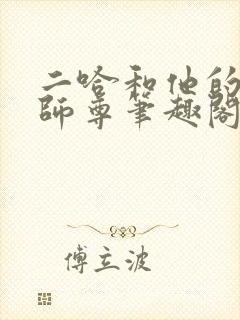 二哈和他的
師尊笔趣閣
傅立波